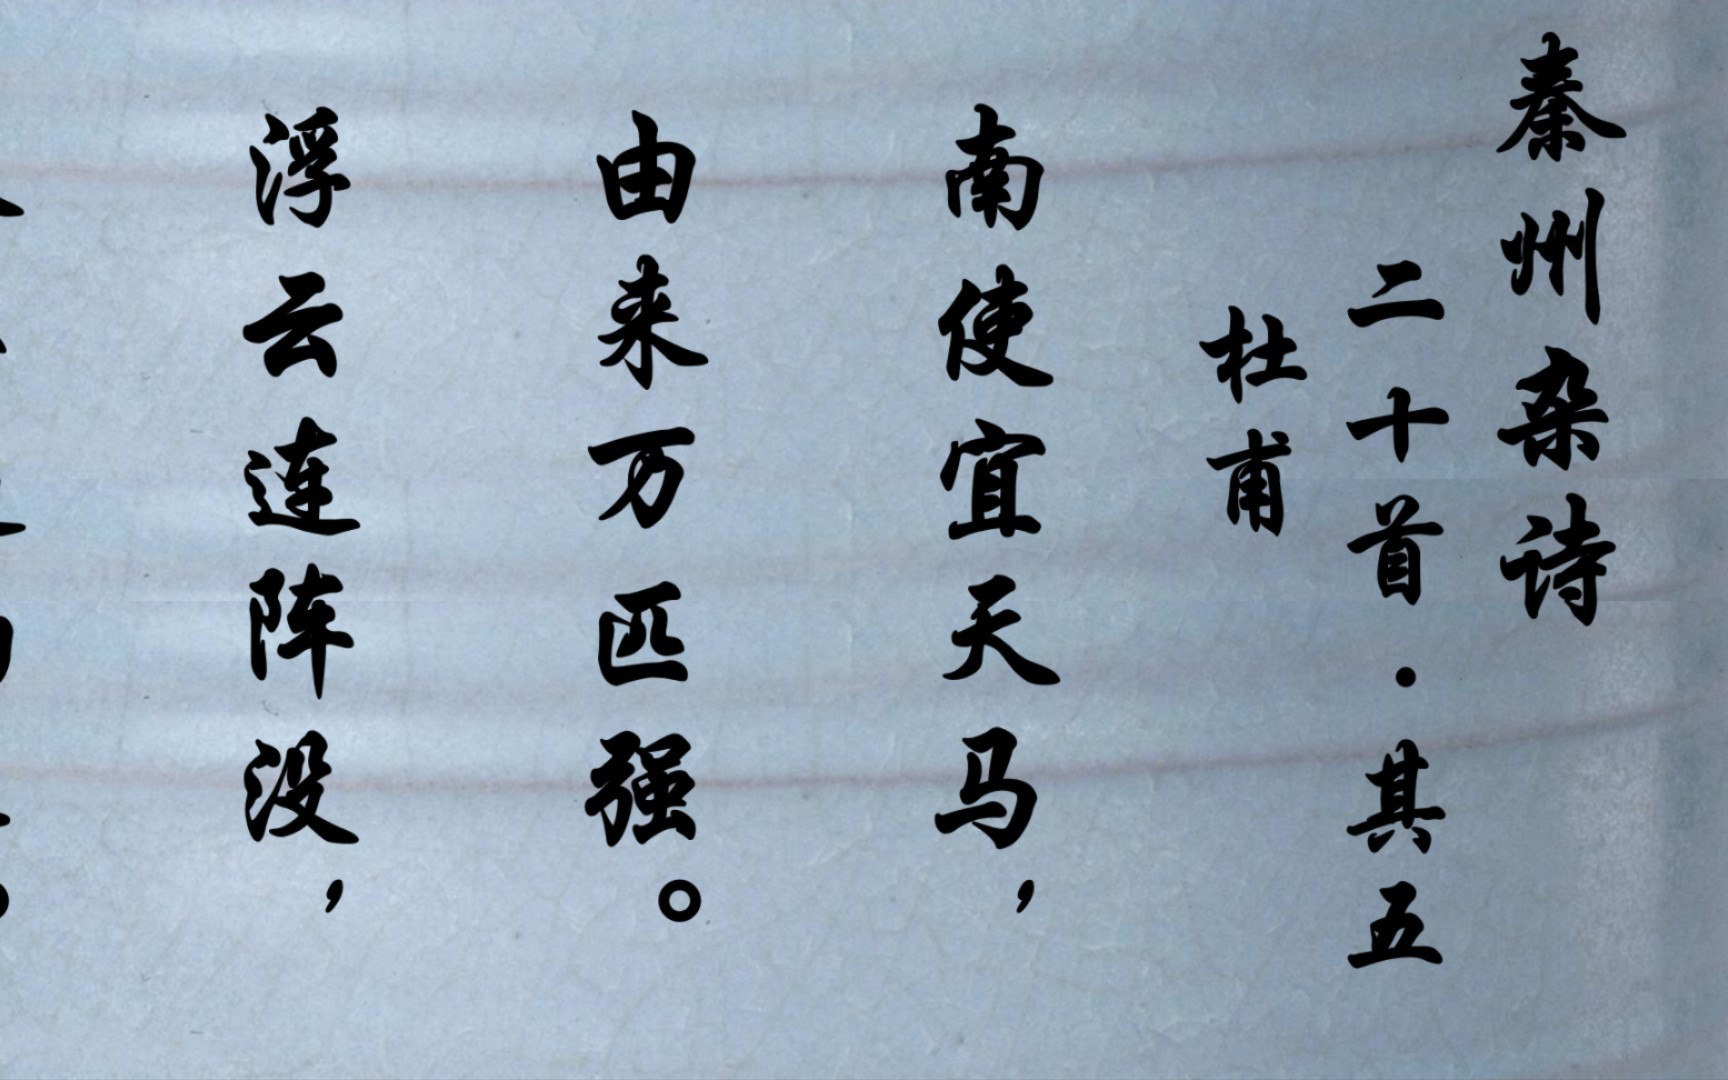 秦州杂诗
二十首·其五
杜甫
南使宜天马，
由来万匹强。
浮云连阵没，